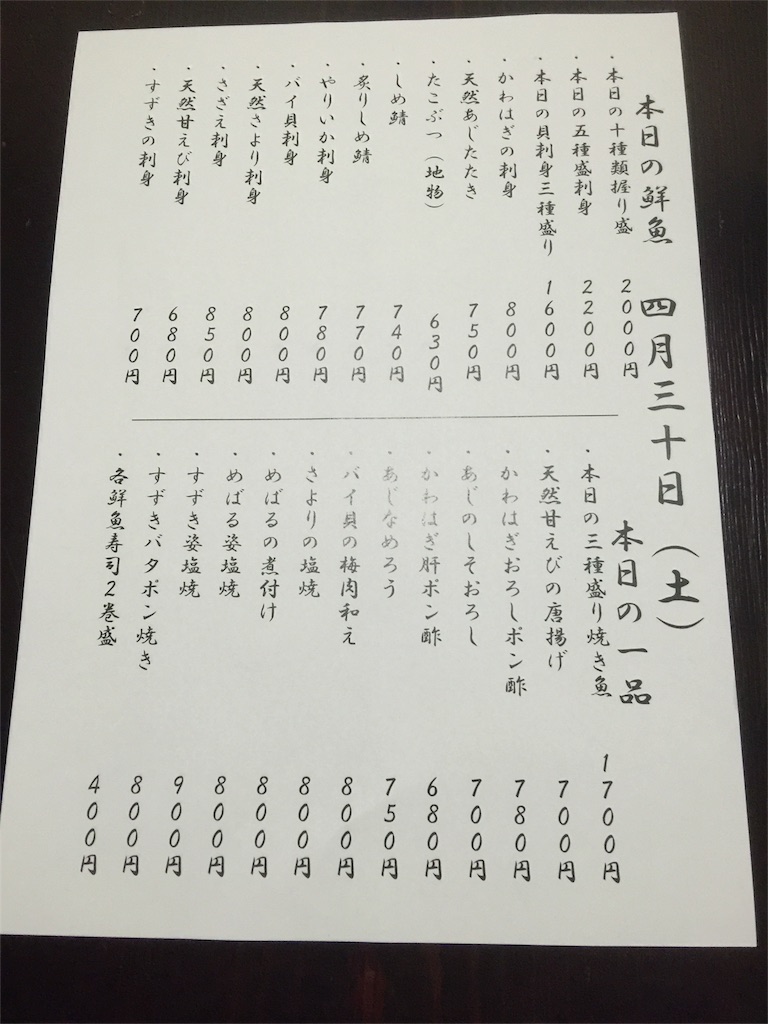 本日の鮮魚 四月三十日(土)
・本日の十種類握り盛 2000円
・本日の五種盛刺身 2200円
・本日の貝刺身三種盛り 1600円
・かわはぎの刺身 800円
・天然あじたたき 750円
・たこぶつ(地物) 630円
・しめ鯖 740円
・炙りしめ鯖 770円
・やりいか刺身 780円
・バイ貝刺身 800円
・天然さより刺身 800円
・さざえ刺身 850円
・天然甘えび刺身 680円
・すずきの刺身 700円
本日の一品
・本日の三種盛り焼き魚 1700円
・天然甘えびの唐揚げ 700円
・かわはぎおろしポン酢 780円
・あじのしそおろし 700円
・かわはぎ肝ポン酢 680円
・あじなめろう 750円
・バイ貝の梅肉和え 800円
・さよりの塩焼 800円
・めばるの煮付け 800円
・めばる姿塩焼 800円
・すずき姿塩焼 900円
・すずきバタポン焼き 800円
・各鮮魚寿司2巻盛 400円